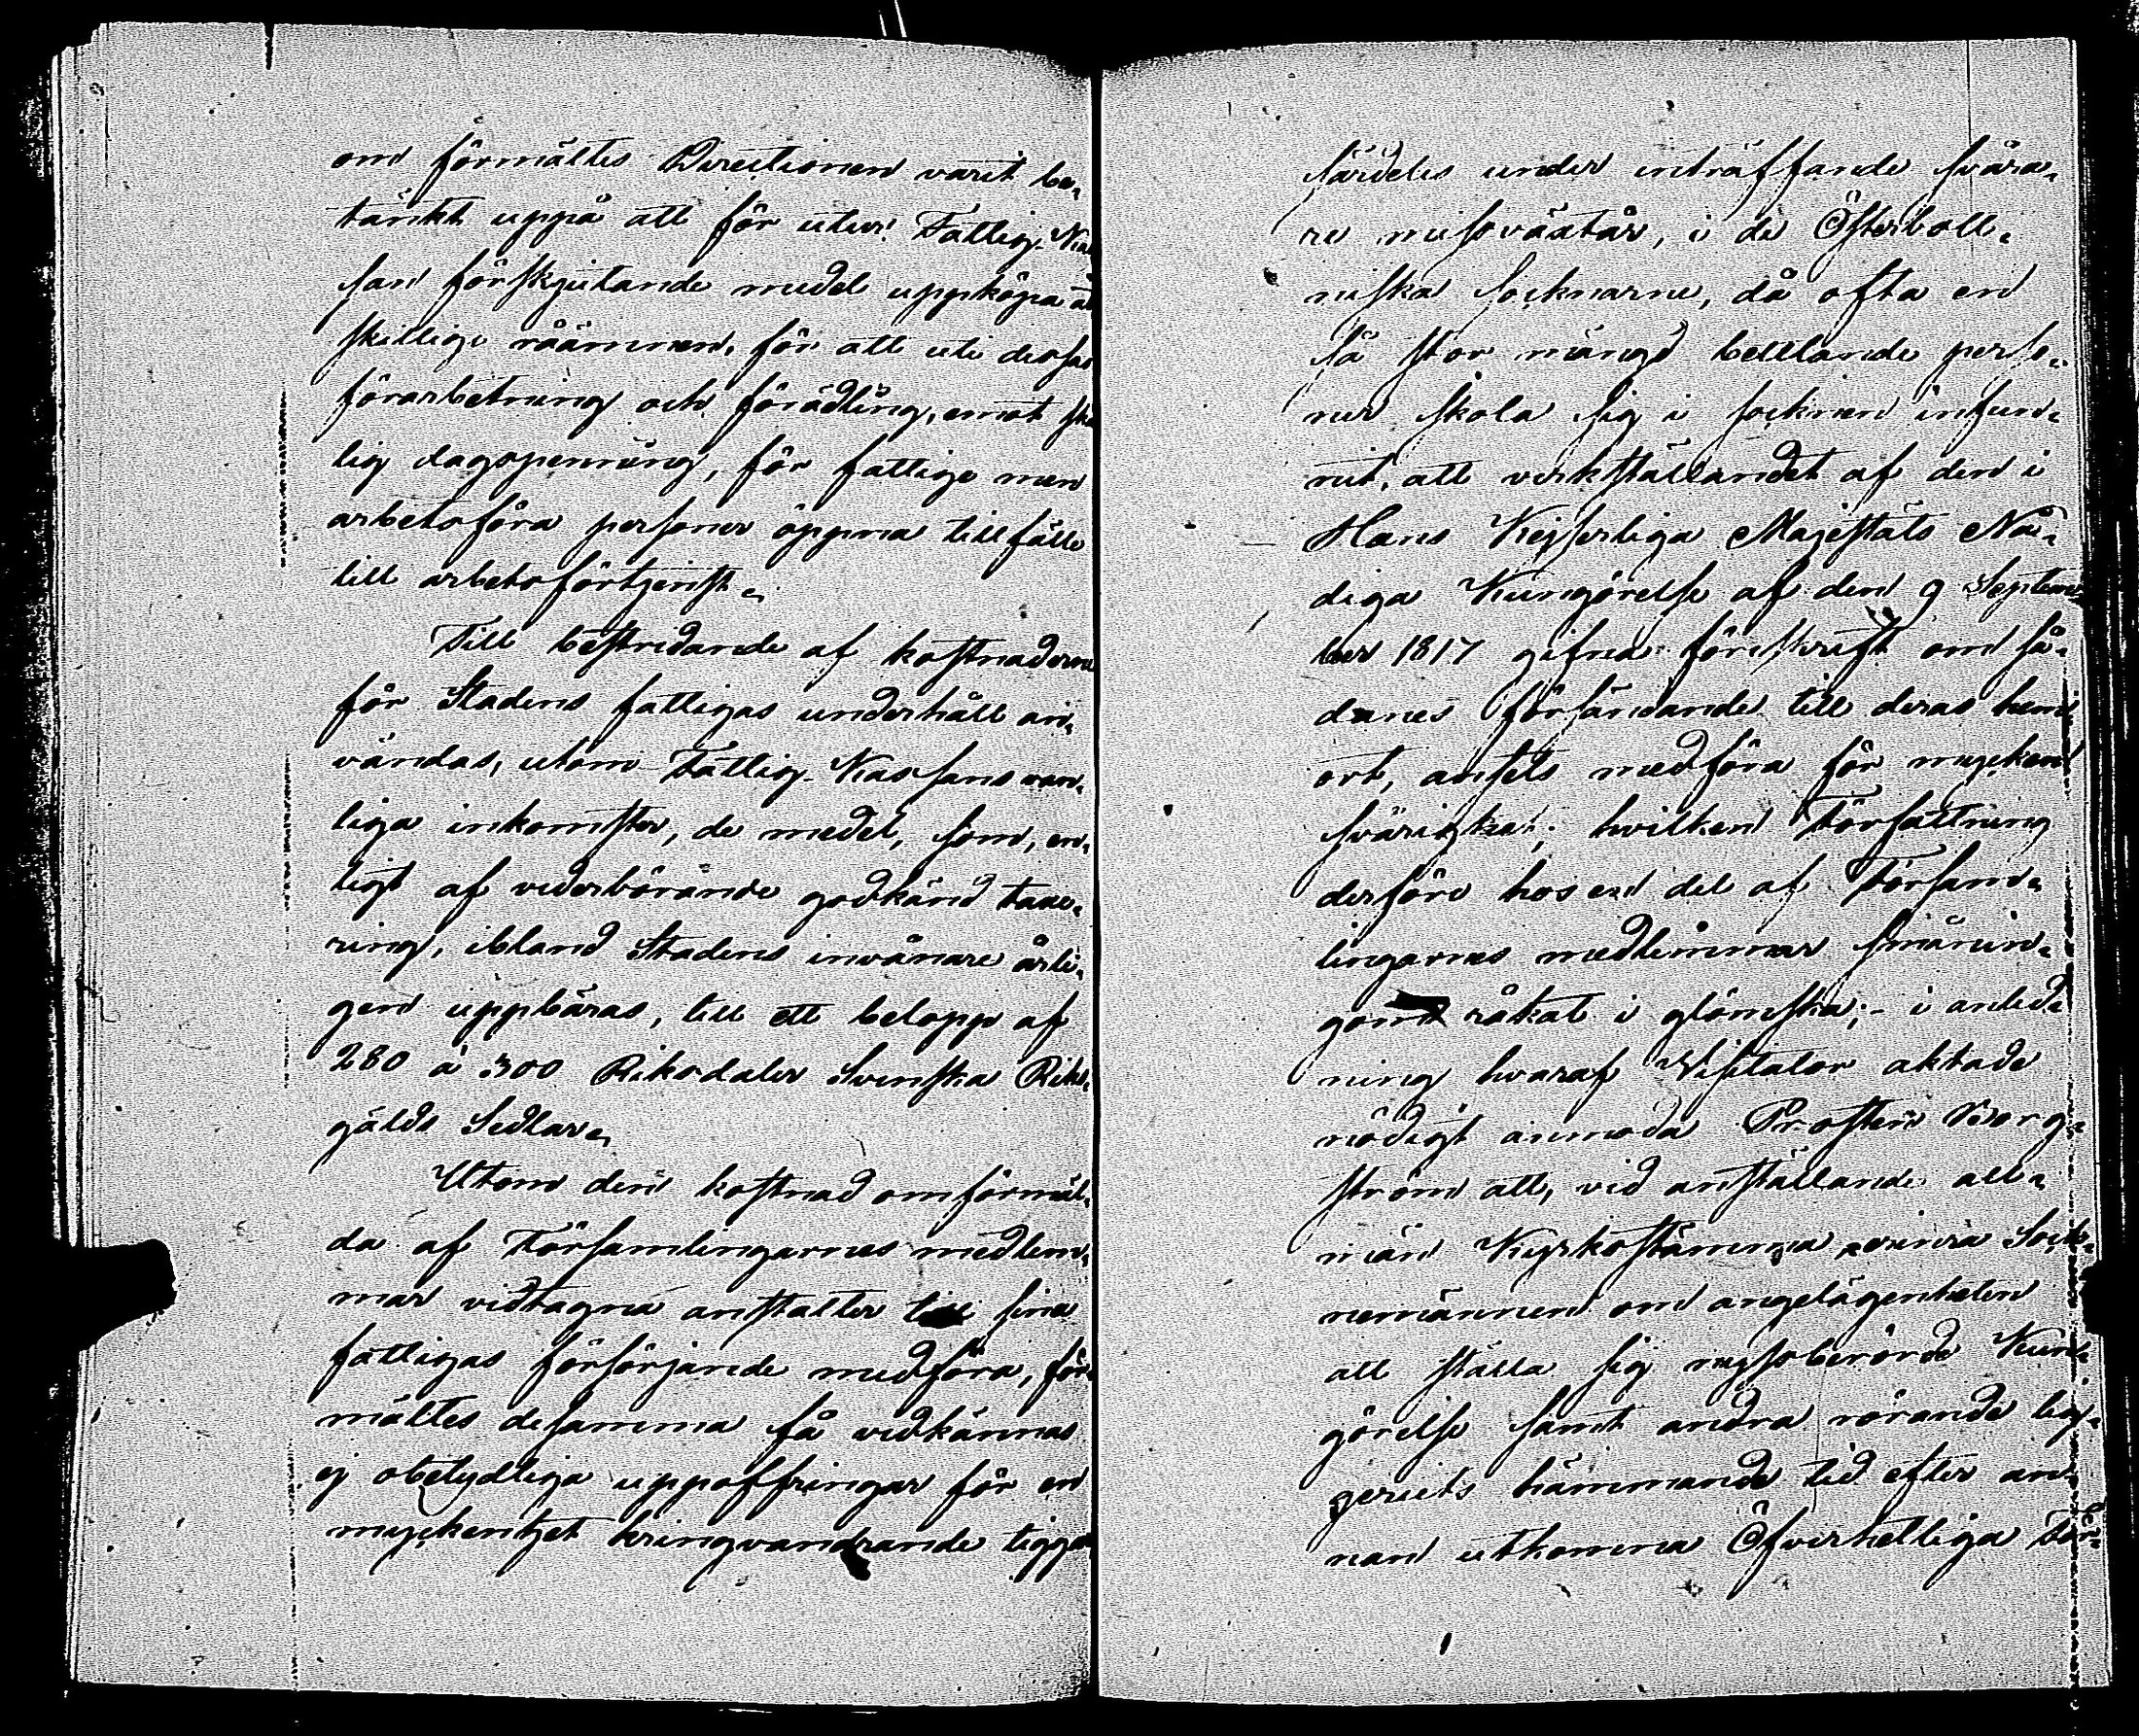 om förmältes Directionen varit be-
tänkt uppå att för utur Fattig-Kas
san förskjutande medel uppköpa åt
skillige råämnen, för att uti dessas
förarbetning och förädling, emot skä
lig dagspenning, för fattige men
arbetsföra personer öppna tillfälle
till arbetsförtjenst.
Till bestridande af kostnaderne
för Stadens fattigas underhåll an-
vändas, utom Fattig-Kassans van-
liga inkomster, de medel, som, en-
ligt af vederbörande godkänd taxe-
ring, ibland Stadens invånare årli-
gen uppbäras, till ett belopp af
280 à 300 Riksdaler Svenska Riks-
gälds Sedlar.
Utom den kostnad omförmäl-
da af Församlingarnes medlem-
mar vidtagna anstalter till sina
fattigas försörjande medföra, för-
mältes desamma få vidkännas
ej obetydliga uppoffringar för en
myckenhet kringvandrande tigga
särdeles under inträffande svåra-
re missväxtår, i de Österbott-
niska socknarne, då ofta en
så stor mängd bettlande perso-
ner skola sig i socknen infun-
nit, att verkställandet af den i
Hans Kejserliga Majestäts Nå-
diga Kungörelse af den 9 Septem-
ber 1817 gifna föreskrift om så-
danes försändande till deras hem-
ort, ansets medföra för mycken
svårighet; hvilken Författning
derföre hos en del af Försam-
lingarnes medlemmar småning-
om råkat i glömska; - i anled-
ning hvaraf Visitator aktade
nödigt anmoda Prosten Borg-
ström att, vid anställande all-
män Kyrkostämma, erinra Sock-
nemännen om angelägenheten
att ställa sig nyssberörde Kun-
görelse samt andra rörande tig-
geriets hämmande tid efter an-
nan utkomna Öfverhetliga För-